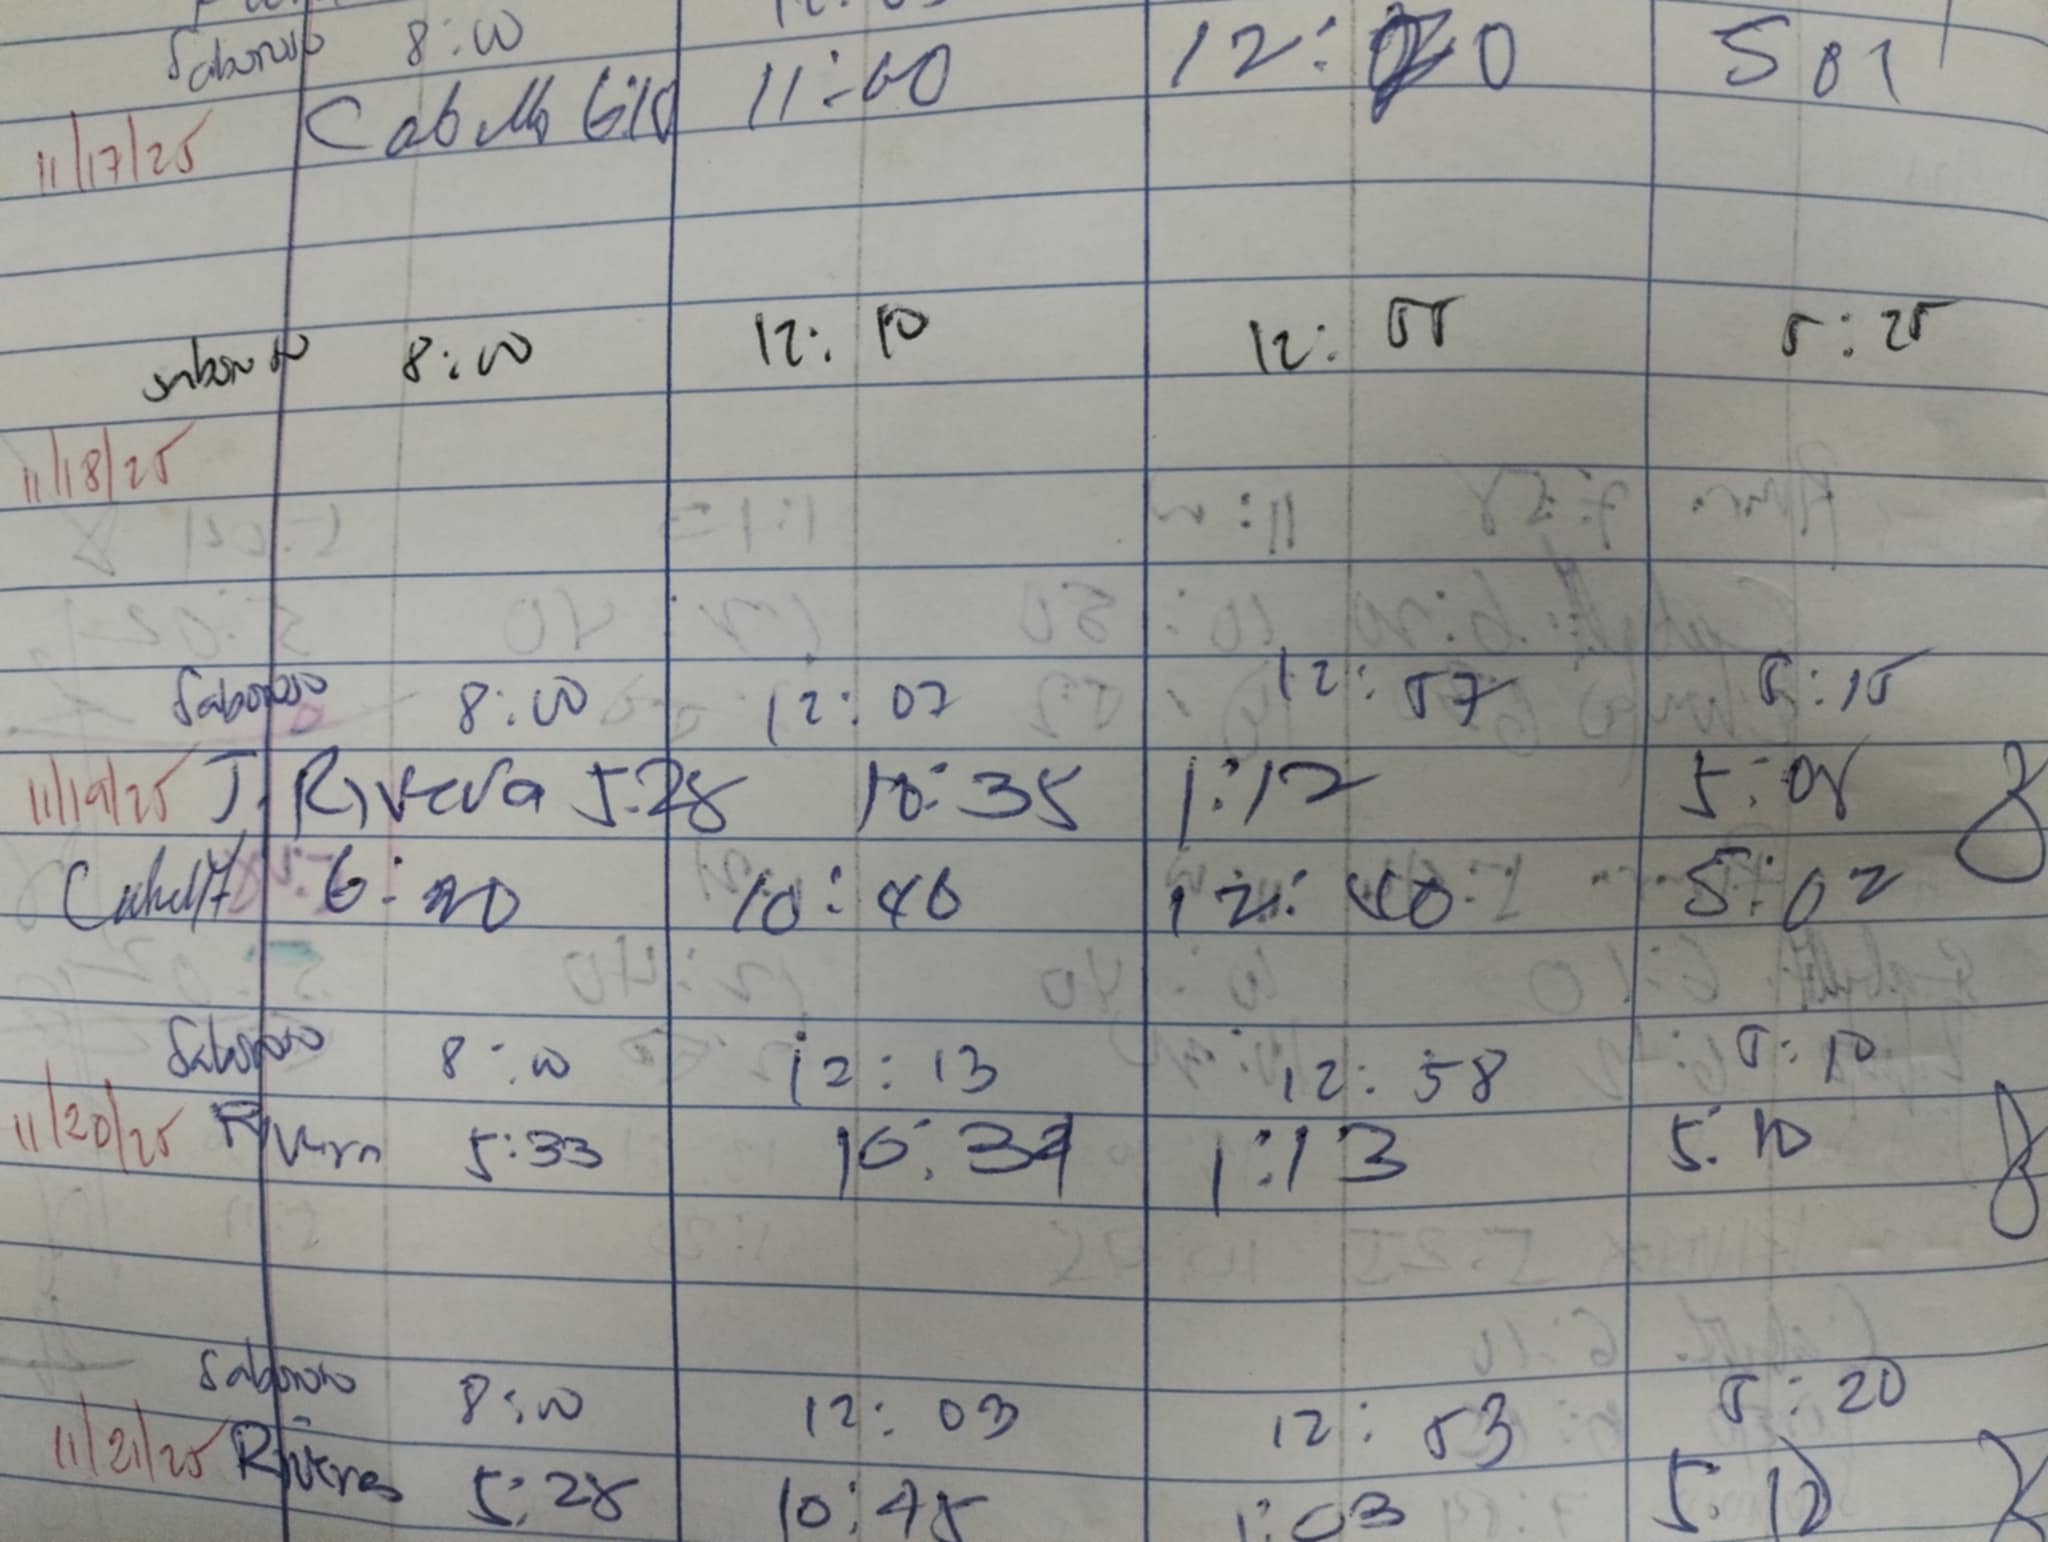 Saboroso 8:00
Cabello 6:10 11:00 12:20 5 01
11/17/25
Saboroso 8:00 12:10 12:55 5:25
11/18/25
Saboroso 8:00 12:07 12:57 5:15
11/19/25 J. Rivera 5:28 10:35 1:12 5:08
Cabello 6:20 10:40 12:40 5:02
Saboroso 8:00 12:13 12:58 5:10
11/20/25 Rivera 5:33 10:34 1:13 5:10
Saboroso 8:00 12:03 12:53 5:20
11/21/25 Rivera 5:28 10:48 1:03 5:12